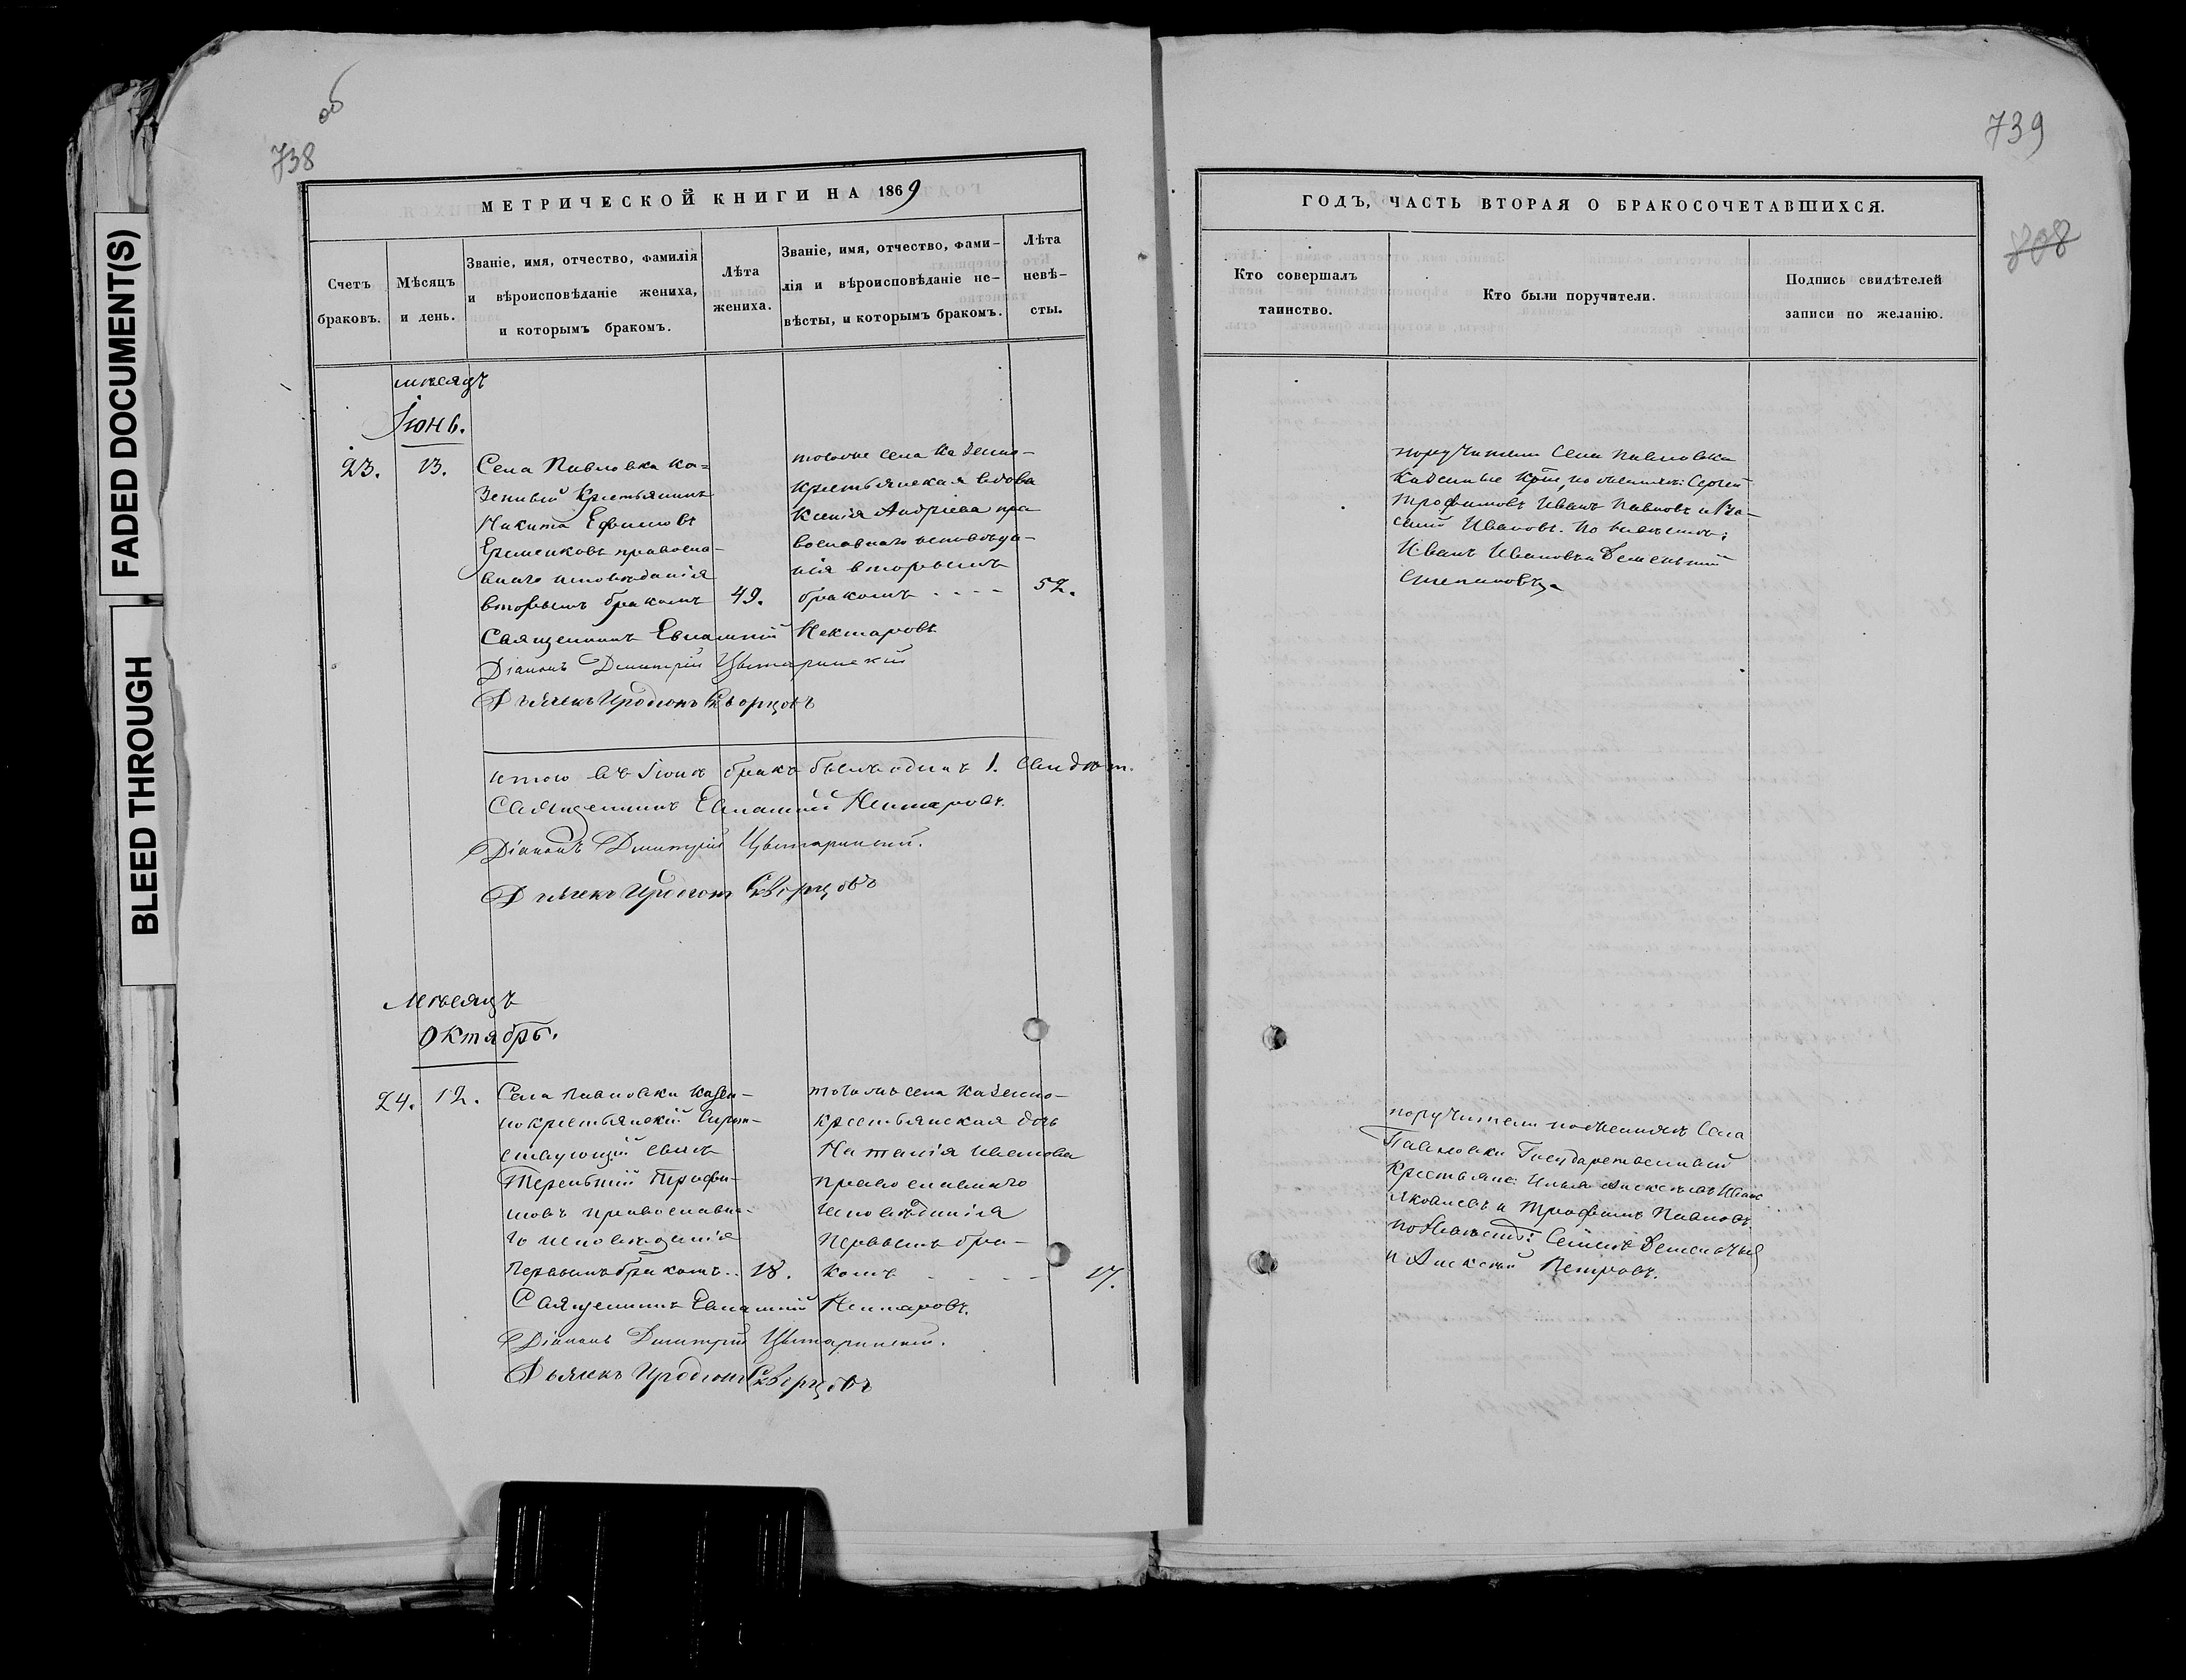 FADED DOCUMENT(S)
BLEED THROUGH
738
об
МЕТРИЧЕСКОЙ КНИГИ НА 1869
Счетъ браковъ.
Мѣсяцъ и день.
Званіе, имя, отчество, фамилія
и вѣроисповѣданіе жениха,
и которымъ бракомъ.
Лѣта
жениха.
Званіе, имя, отчество, фами-
лія и вѣроисповѣданіе не-
вѣсты, и которымъ бракомъ.
Лѣта
невѣ-
сты.
мѣсяцъ
Іюнь.
23.
13.
Села Павловка ка=
зенный крестьянинъ
Никита Ефимовъ
Еременковъ правосла-
внаго исповѣданія
вторымъ бракомъ
49.
тогоже села казенно-
крестьянская вдова
Ксенія Андріева пра
вославнаго исповѣда-
нія вторымъ
бракомъ - - - -
52.
Священникъ Евлампій Нектаровъ
Діаконъ Димитрій
Дьячекъ Иродіонъ Скворцовъ
итого въ Іюнѣ бракъ былъ одинъ 1. свидѣт.
Священникъ Евлампій Нектаровъ.
Діаконъ Димитрій
Дьячекъ Иродіонъ Скворцовъ
Мѣсяцъ
Октябрь.
24.
12.
Села Павловки казен-
нокрестьянскій сирот-
ствующій сынъ
Терентій Трофи-
мовъ православна-
го исповѣданія
первымъ бракомъ..
18.
тогожъ села казенно-
крестьянская дочь
Наталія
православнаго
исповѣданія
первымъ бра-
комъ - - - -
17.
Священникъ Евлампій Нектаровъ.
Діаконъ Димитрій
Дьячекъ Иродіонъ Скворцовъ
739
808
ГОДЪ, ЧАСТЬ ВТОРАЯ О БРАКОСОЧЕТАВШИХСЯ.
Кто совершалъ
таинство.
Кто были поручители.
Подпись свидѣтелей
записи по желанію.
поручители села Павловка
казенные по женихѣ: Сергей
Трофимовъ Иванъ Павловъ и Ва-
силій Ивановъ. По невѣстѣ:
Иванъ Ивановъ и Дементій
Степановъ.
поручители по женихѣ села
Павловки Государственный
крестьяне: Илья Алексѣевъ Иванъ
Яковлевъ и Трофимъ Павловъ.
по невѣстѣ: Семенъ
и Алексѣй Петровъ.